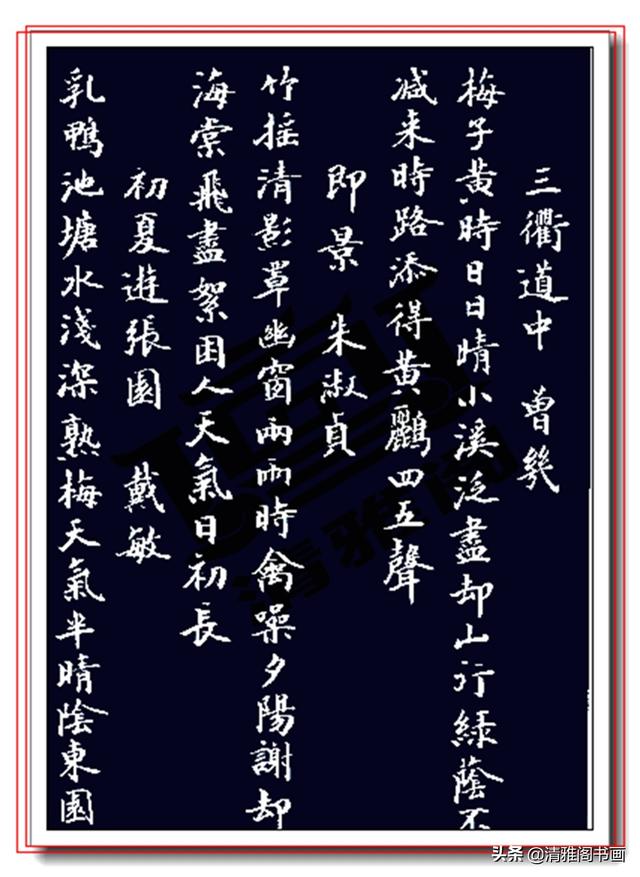 三衢道中 曾幾
梅子黄時日日晴小溪泛盡却山行綠蔭不
减来時路添得黄鸝四五聲
即景 朱淑貞
竹摇清影罩幽窗兩兩時禽噪夕陽謝却
海棠飛盡絮困人天氣日初長
初夏遊張園 戴敏
乳鴨池塘水淺深熟梅天氣半晴陰東園
清雅阁
头条 @清雅阁书画